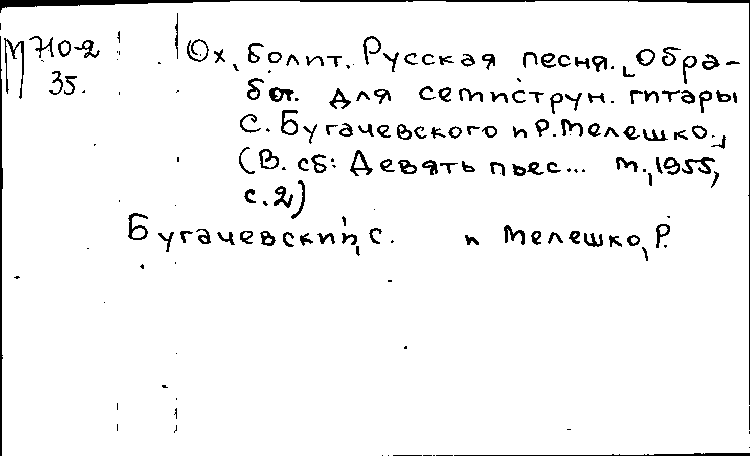 М 710-2
35.
Ох, болит. Русская песня. [Обра-
бот. для семиструн. гитары
С. Бугачевского и Р. Мелешко.]
(В. сб: Девять пьес... М., 1955,
с. 2)
Бугачевский, С. и Мелешко, Р.